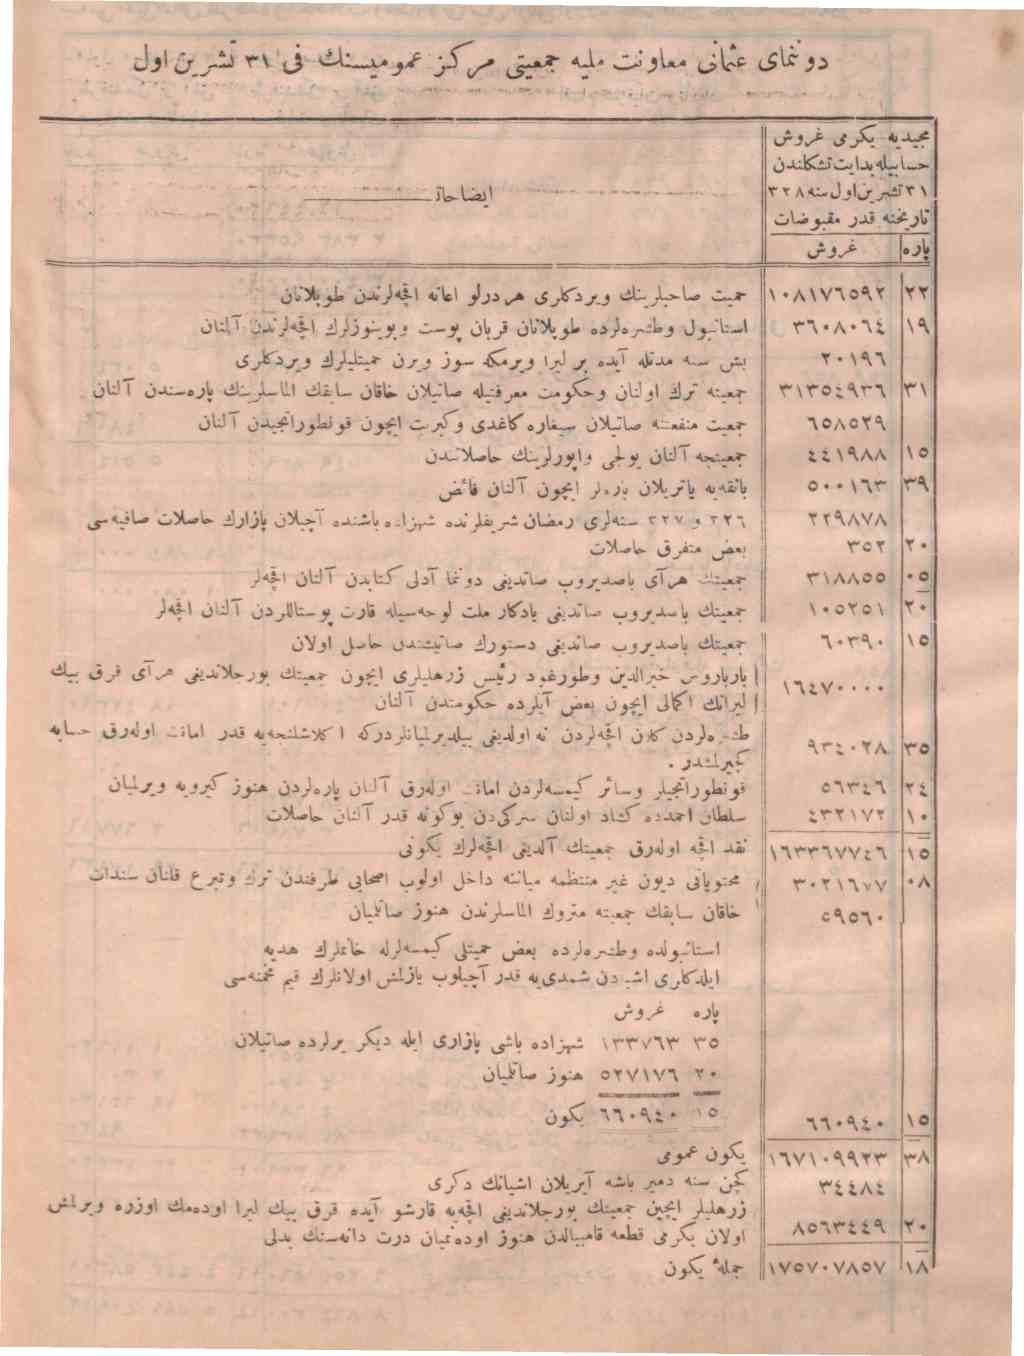 دوننمای عثمانی معاونت ملیه جمعیتی مركز عمومیسنك فی ٣١ تشرین اول
مجیدیه یكرمی غروش
حسابیله بدایت تشكلندن
٣١ تشرین اول سنه ٣٢٨
تاریخنه قدر مقبوضات
ایضاحات
پاره غروش
٢٢ ١٠٨١٧٦٥٩٢ حمیت صاحبلرینك ویردكلری هردرلو اعانه اقچه‌لرندن طوپلانان
١٩ ٣٦٠٨٠٦٤ استانبول وطشره‌لرده طوپلانان قربان پوست وبوینوزلرك اقچه‌لرندن آلنان
٢٠١٩٦ بش سنه مدتله آیده بر لیرا ویرمكه سوز ویرن حمیتلیلرك ویردكلری
٣١ ٣١٣٥٤٩٣٦ جمعیته ترك اولنان وحكومت معرفتیله صاتیلان خاقان سابقك الماسلرینك پاره‌سندن آلنان
٦٥٨٥٢٩ جمعیت منفعتنه صاتیلان سیغاره كاغدی وكبریت ایچون قونطوراتجیدن آلنان
١٥ ٤٤١٩٨٨ جمعیتجه آلنان یولجی واپورلرینك حاصلاتندن
٣٩ ٥٠٠١٦٣ بانقه‌یه یاتریلان پاره‌لر ایچون آلنان فائض
٢٢٩٨٧٨ ٣٢٦ و ٣٢٧ سنه‌لری رمضان شریفلرنده شهزاده باشنده آچیلان پازارك حاصلات صافیه‌سی
٢٠ ٣٥٢ بعض متفرق حاصلات
٠٥ ٣١٨٨٥٥ جمعیتك هرآی باصدیروب صاتدیغی دوننما آدلی كتابدن آلنان اقچه‌لر
٢٠ ١٠٥٢٥١ جمعیتك باصدیروب صاتدیغی یادكار ملت لوحه‌سیله قارت پوستاللردن آلنان اقچه‌لر
١٥ ٦٠٣٩٠ جمعیتك باصدیروب صاتدیغی دستورك صاتیشندن حاصل اولان
١٦٤٧٠٠٠٠ بارباروس خیرالدین وطورغود رئیس زرهلیلری ایچون جمعیتك بورجلاندیغی هرآی قرق بیك
لیرانك اكمالی ایچون بعض آیلرده حكومتدن آلنان
٣٥ ٩٣٤٠٢٨ طشره‌لردن كلان اقچه‌لردن نه اولدیغی بیلدیرلمیانلردركه اكلاشلنجه‌یه قدر امانت اوله‌رق حسابه
كچیرلمشدر .
٢٤ ٥٦٣٤٦ قونطوراتجیلر وسائر كیمسه‌لردن امانت اوله‌رق آلنان پاره‌لردن هنوز كیرویه ویرلمیان
١٠ ٤٣٢١٧٢ سلطان احمدده كشاد اولنان سركی‌دن بوكونه قدر آلنان حاصلات
١٥ ١٦٣٣٦٧٧٤٦ نقد اقچه اوله‌رق جمعیتك آلدیغی اقچه‌لرك یكونی
٠٨ ٣٠٢١٦٧٧ محتویاتی دیون غیر منتظمه میاننه داخل اولوب اصحابی طرفندن ترك وتبرع قلنان سندات
٥٩٥٦٠ خاقان سابقك جمعیته متروك الماسلرندن هنوز صاتلمیان
استانبولده وطشره‌لرده بعض حمیتلی كیمسه‌لرله خانملرك هدیه
ایلدكلری اشیادن شمدی‌یه قدر آچیلوب یازلمش اولانلرك قیم مخمنه‌سی
پاره غروش
٣٥ ١٣٣٧٦٣ شهزاده باشی پازاری ایله دیكر یرلرده صاتیلان
٢٠ ٥٢٧١٧٦ هنوز صاتلمیان
١٥ ٦٦٠٩٤٠ یكون
١٥ ٦٦٠٩٤٠
٣٨ ١٦٧١٠٩٩٢٣ یكون عمومی
٣٤٤٨٤ كچن سنه دمیر باشه آیریلان اشیانك دكری
زرهلیلر ایچین جمعیتك بورجلاندیغی اقچه‌یه قارشو آیده قرق بیك لیرا اوده‌مك اوزره ویرلمش
٢٠ ٨٥٦٣٤٤٩ اولان یكرمی قطعه قامبیالدن هنوز اوده‌نمیان درت دانه‌سنك بدلی
١٨ ١٧٥٧٠٧٨٥٧ جملهٔ یكون